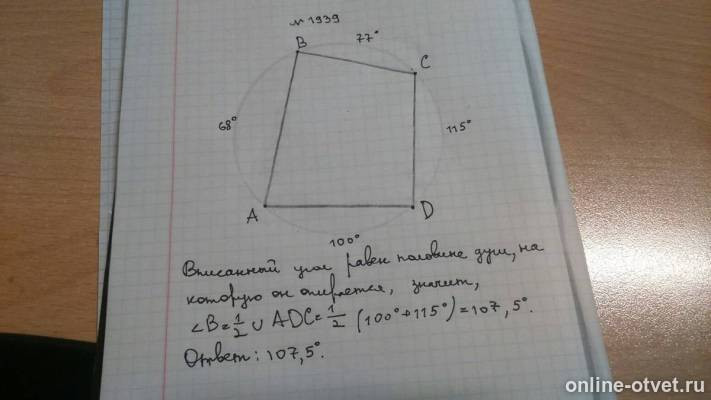 № 1939
B
77°
C
68°
115°
A
D
100°
Вписанный угол равен половине дуги, на
которую он опирается, значит,
∠B = 1/2 ∪ ADC = 1/2 (100°+115°) = 107,5°.
Ответ: 107,5°.
online-otvet.ru